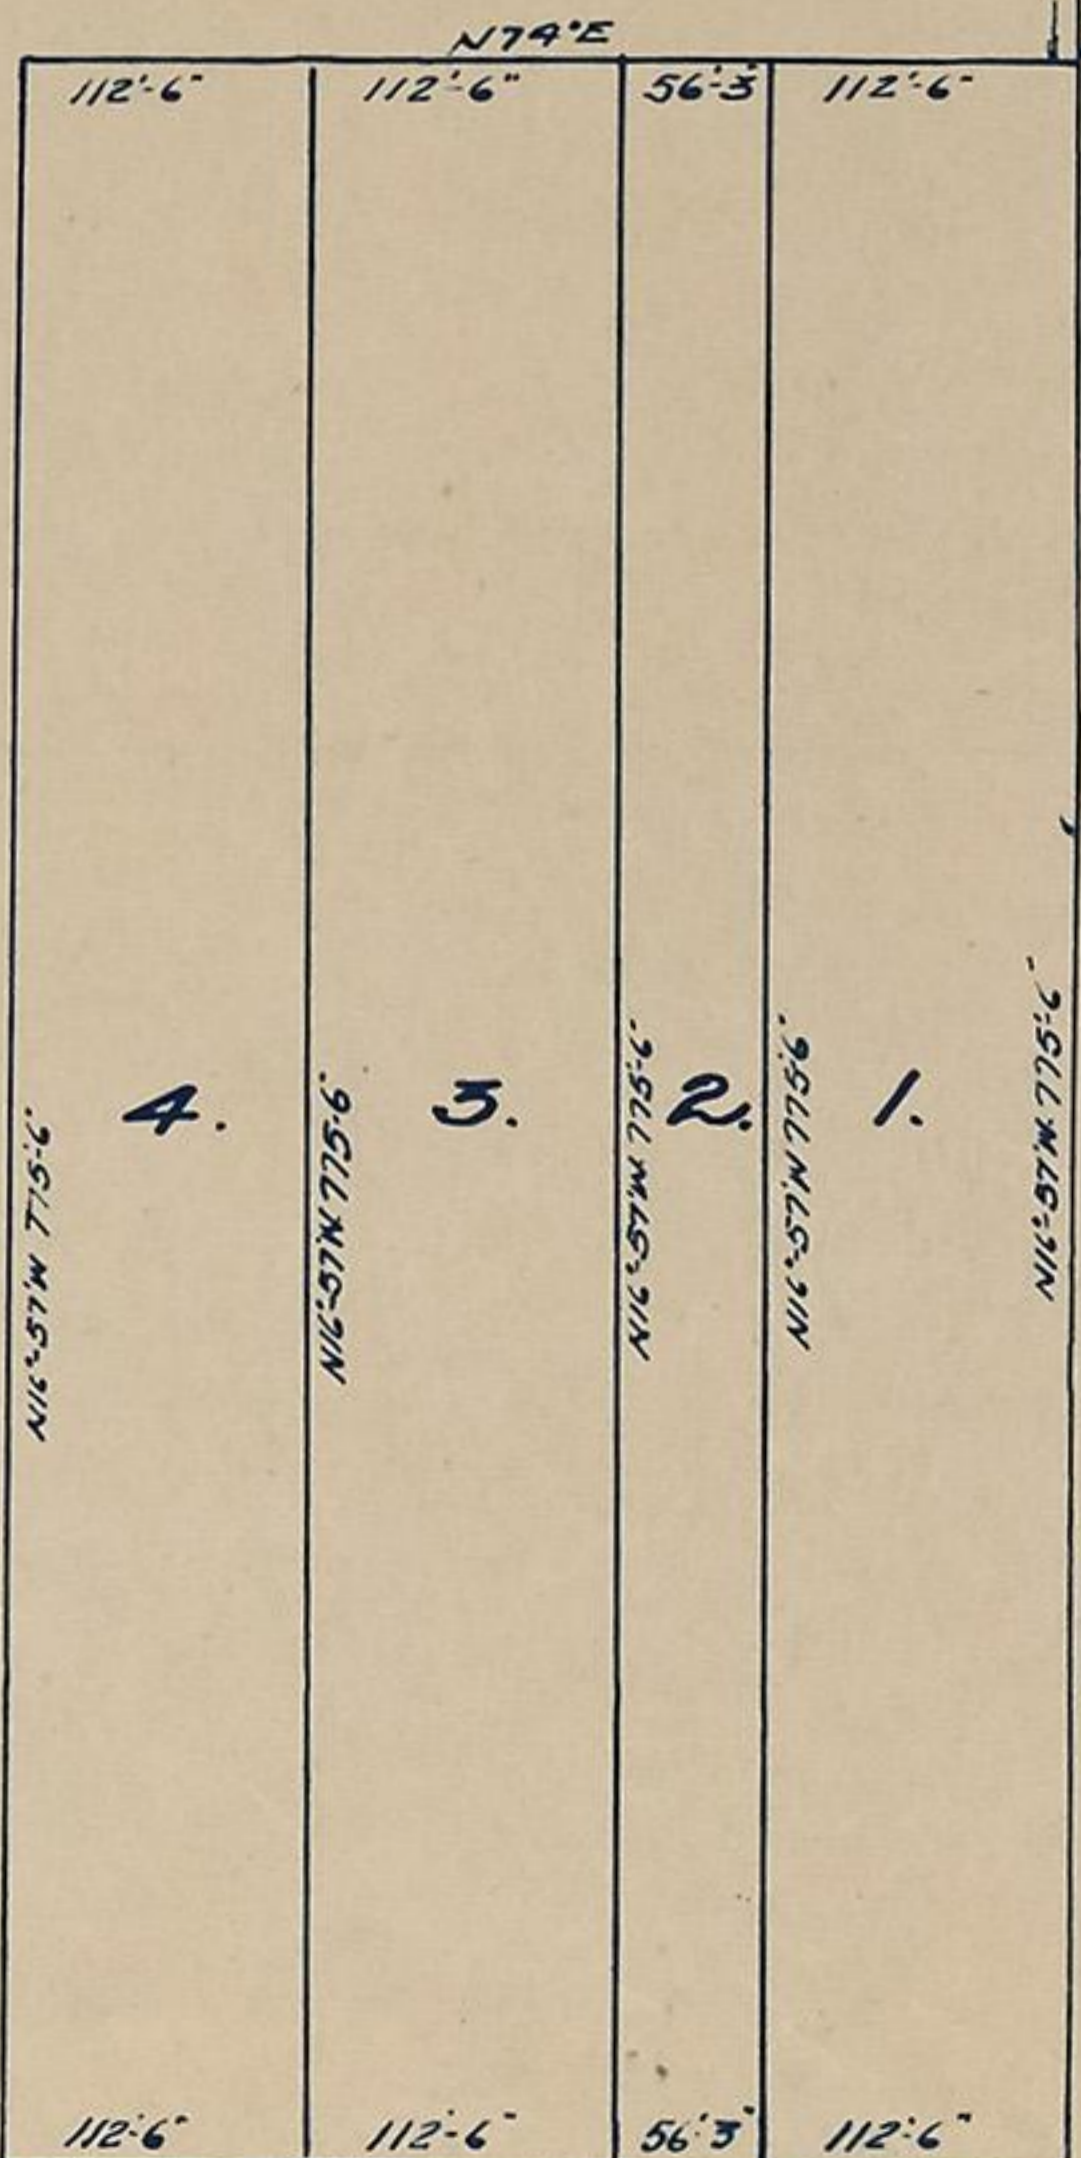 N74°E
112'-6"
112'-6"
56'-3"
112'-6"
4.
3.
2.
1.
N16°-57'W 775'-6"
N16°-57'W 775'-6"
N16°-57'W 775'-6"
N16°-57'W 775'-6"
N16°-57'W 775'-6"
112'-6"
112'-6"
56'-3"
112'-6"